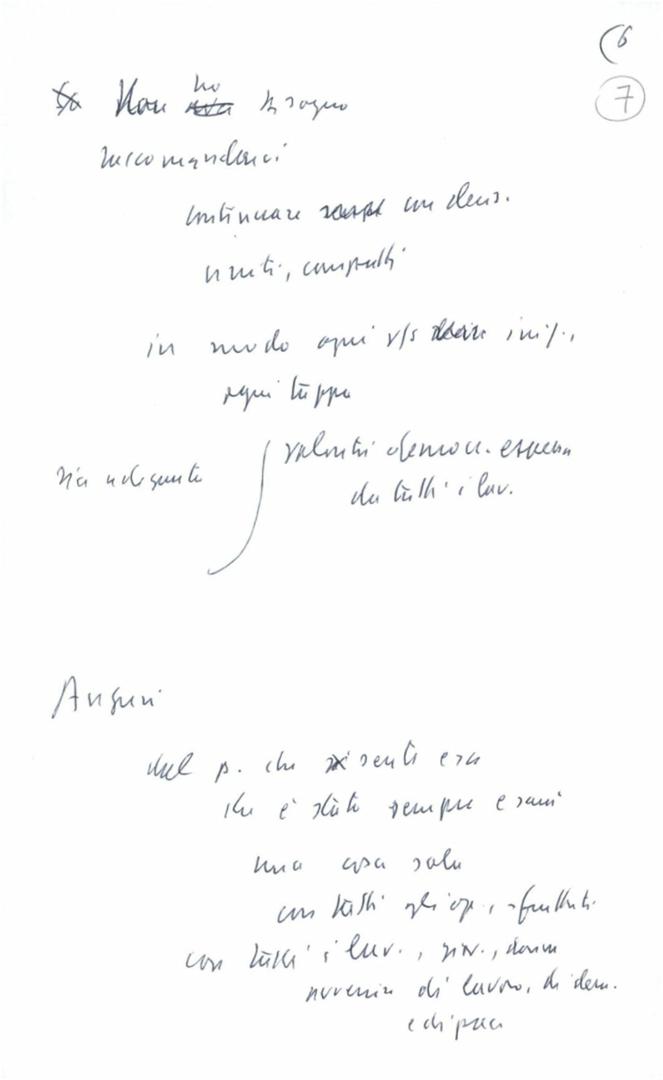 (6
7
Non ho bisogno
raccomandarci
continuare con decis.
uniti, compatti
in modo ogni iniz.,
ogni tappa
sia adeguata
volontà democr. espressa
da tutti i lav.
Auguri
del p. che si sente ed è
che è stato sempre e sarà
una cosa sola
con tutti gli op., sfruttati
con tutti i lav., giov., donne
avvenire di lavoro, di dem.
e di pace